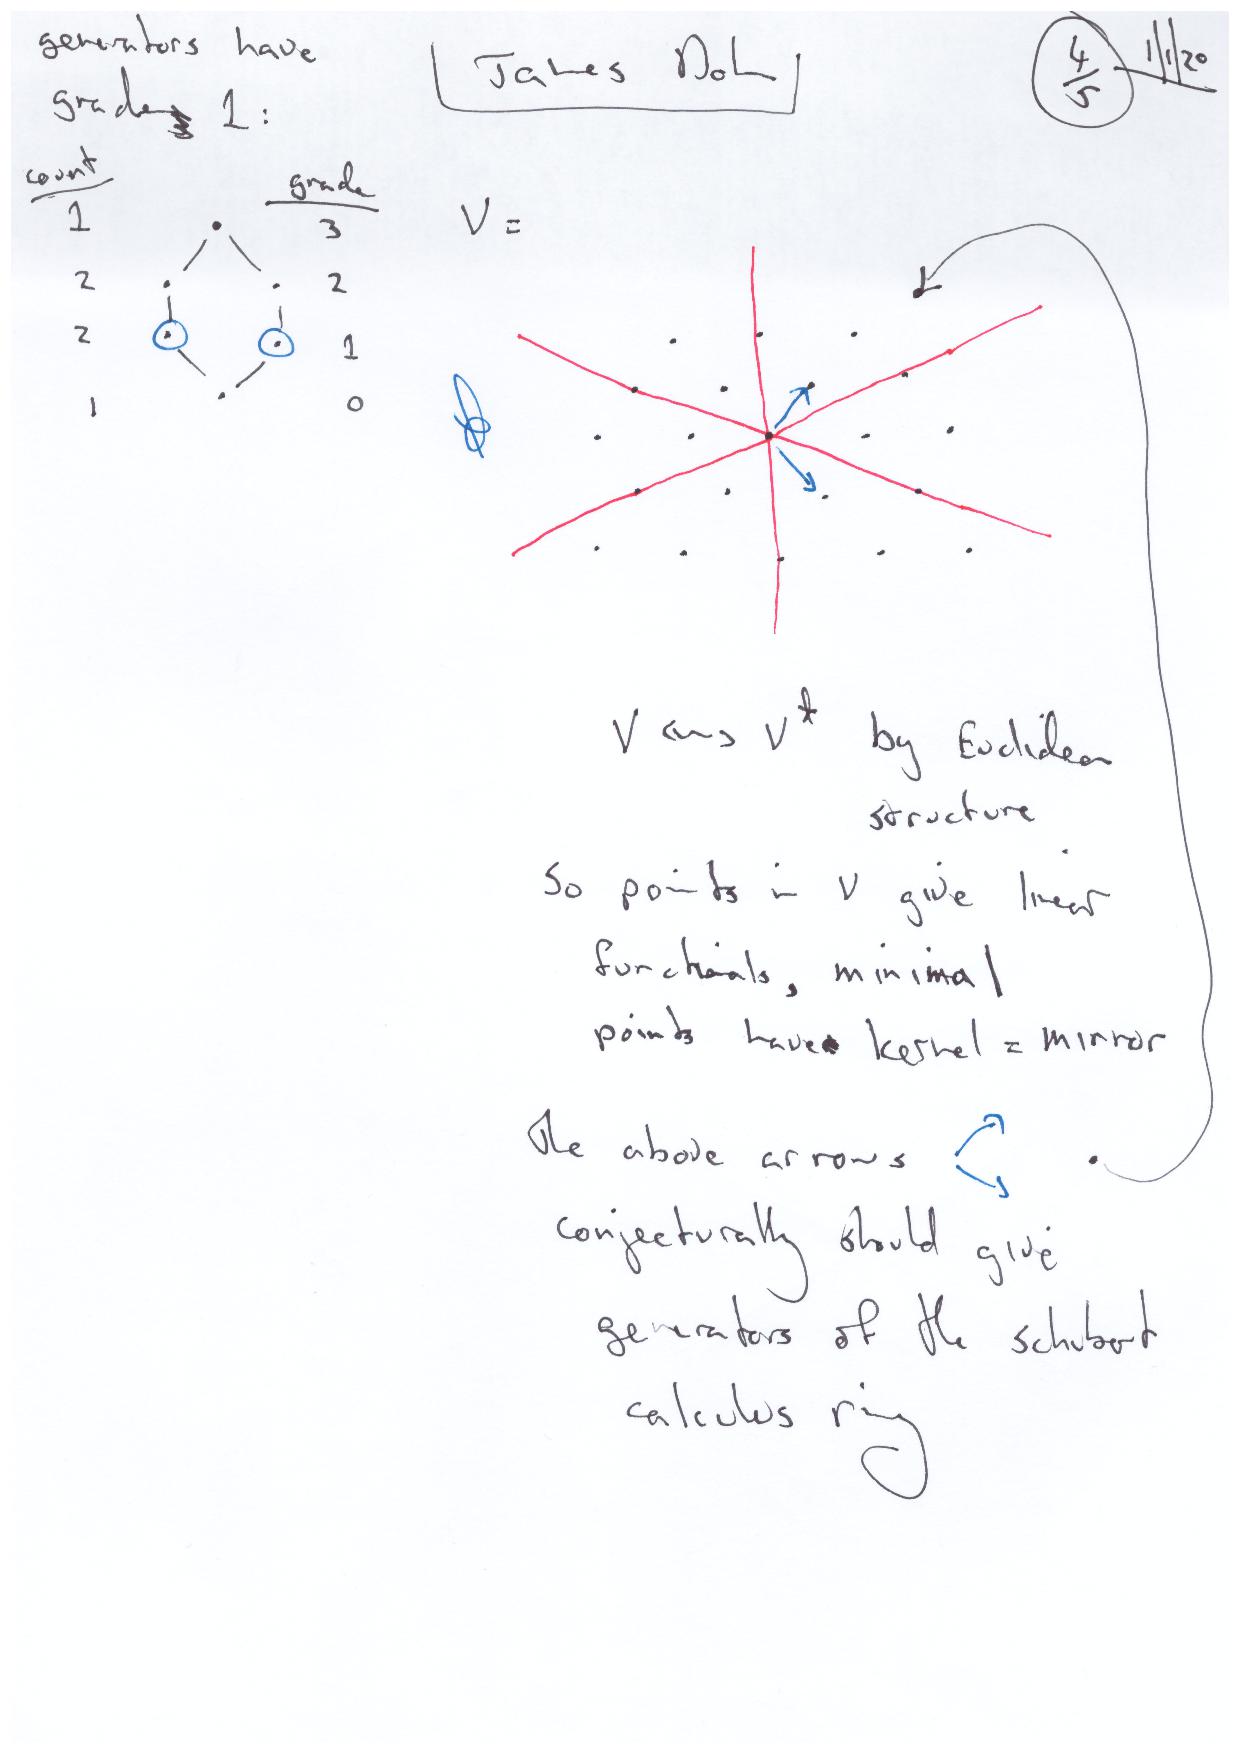 generators have
grade 1:
James Dol
4/5
1/1/20
count
grade
1 3
2 2
2 1
1 0
V =
V <~> V* by Euclidean
structure
So points in V give linear
functionals, minimal
points have kernel = mirror
The above arrows
conjecturally should give
generators of the schubert
calculus ring